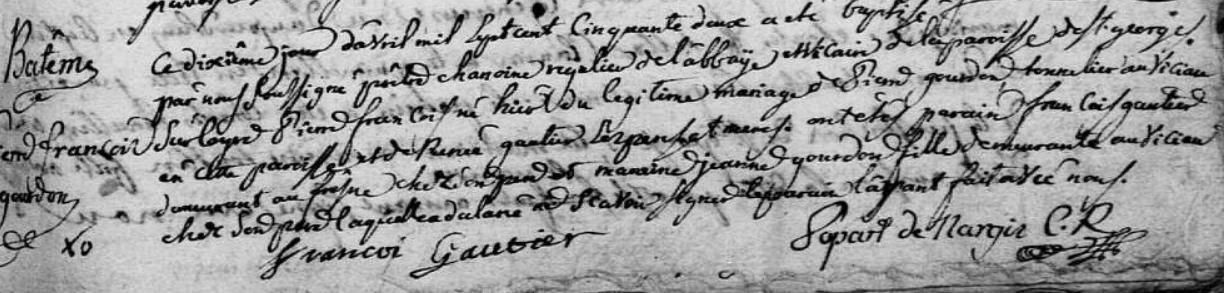 Batême
Ce dixième jour davril mil sept cent Cinquante deux a eté baptisé
par nous soussigné prêtre chanoine régulier de l'abbaye et vicaire de la paroisse de st george
Pierre françois né hier du legitime mariage de Pierre gourdon tonnelier au
françois
en cette paroisse et de Renée gautier ses pere et mere. ont etés parain françois gautier
gourdon
demeurant au fresne chez son pere et maraine jeanne gourdon fille demeurante au
chez son pere laquelle a declaré ne scavoir signer le parain l'ayant fait avec nous.
françoi Gautier
Popart de Nargis C. R.